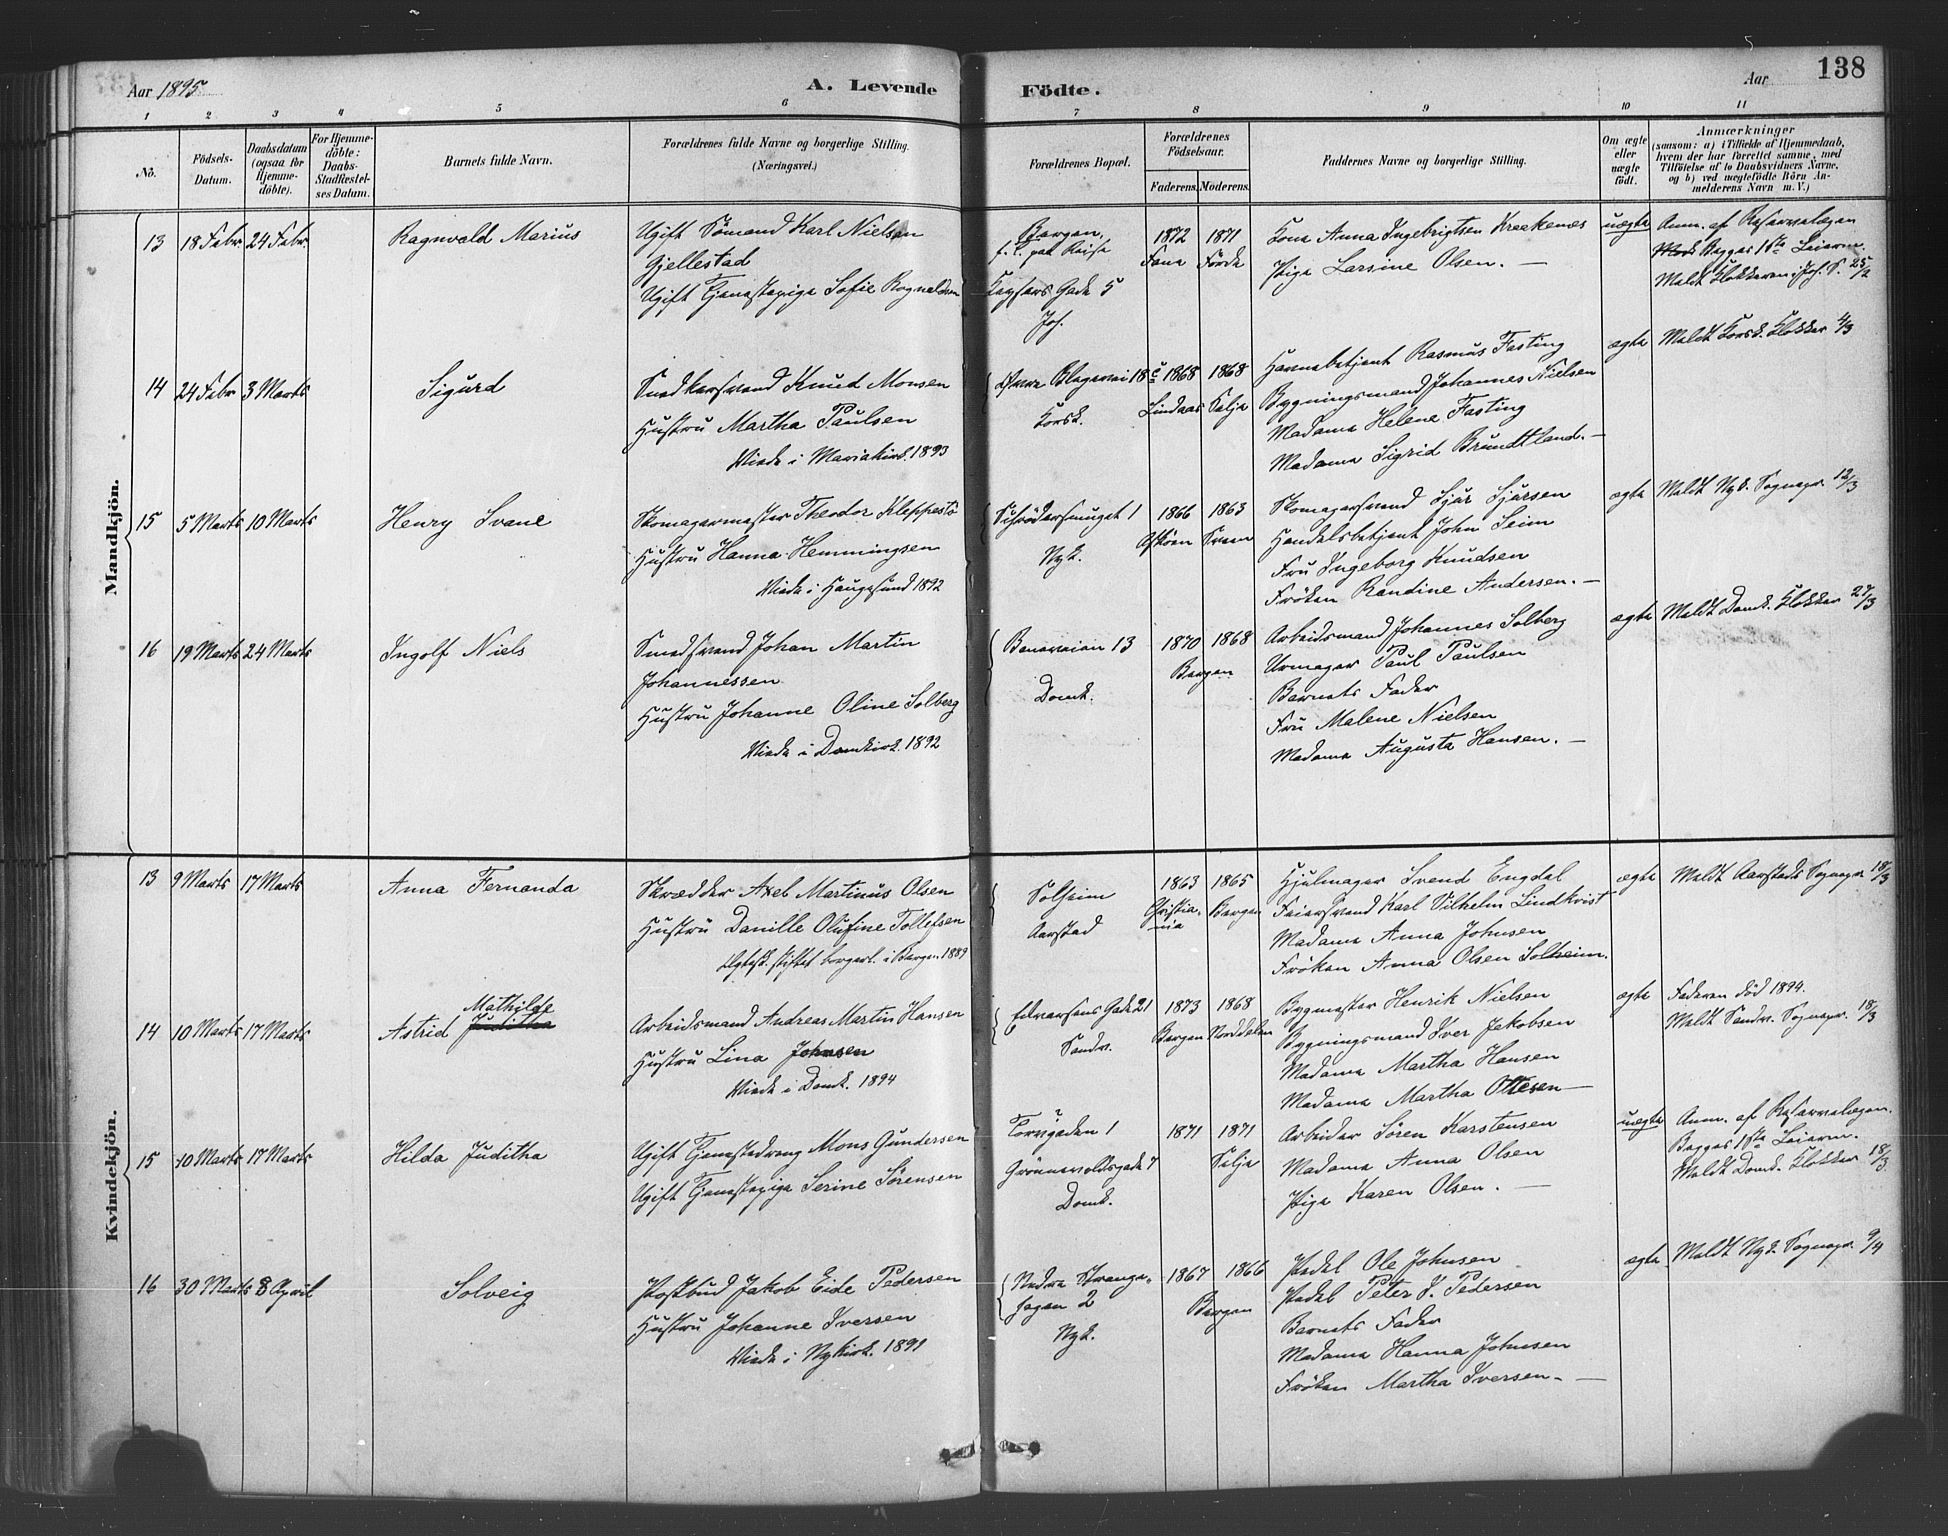 Aar 1895.
A. Levende Födte.
Aar
138
1 2 3 4 5 6 7 8 9 10 11
No.
Födsels-Datum.
Daabsdatum (ogsaa for Hjemme-döbte).
For Hjemme-döbte: Daabs-Stadfestelses Datum.
Barnets fulde Navn.
Forældrenes fulde Navne og borgerlige Stilling. (Næringsvei.)
Forældrenes Bopæl.
Forældrenes Födselsaar.
Faderens. Moderens.
Faddernes Navne og borgerlige Stilling.
Om ægte eller uægte födt.
Anmærkninger
(saasom: a) i Tilfælde af Hjemmedaab, hvem der har forrettet samme, med Tilföielse af to Daabsvidners Navne, og b) ved uægtefödte Börn Anmelderens Navn m. V.)
Mandkjön.
13 18 Febr 24 Febr Ragnvald Marius
Ugift Sömand Karl Nielsen
Gjellestad
Ugift Tjenestepige Sofie Rognaldsen
Bergen,
f. T. paa Reise
Keysers Gade 5
Joh.
1872 1871
Fana Förde
Kone Anna Ingebrigtsen Kraakenæs
Pige Larsine Olsen. —
uægte
Anm. af Reservelægen
Begges 1ste Leierm.
Meldt Klokkeren i Joh. S. 25/2
14 24 Febr 3 Marts Sigurd
Snedkersvend Knud Monsen
Hustru Martha Paulsen
Viede i Mariakirk. 1893
Övre Blegevei 18c
Korsk.
1868 1868
Lindaas Selje
Havnebetjent Rasmus Fasting
Bygningsmand Johannes Nielsen
Madame Helene Fasting
Madame Sigrid Brundtland. —
ægte
Meldt Korsk. Klokker 4/3
15 5 Marts 10 Marts Henry Svane
Skomagermester Theodor Kleppestö
Hustru Hanna Hemmingsen
Viede i Haugesund 1892
Schrödersmuget 1
Nyk.
1866 1863
Askøen Sveen
Skomagersvend Sjur Sjursen
Handelsbetjent John Seim
Fru Ingeborg Knudsen
Fröken Randine Andersen. —
ægte
Meldt Nyk. Sognepr. 12/3
16 19 Marts 24 Marts Ingolf Niels
Smedsvend Johan Martin
Johannessen
Hustru Johanne Oline Solberg
Viede i Domkirk. 1892
Beneveien 13
Domk.
1870 1868
Bergen
Arbeidsmand Johannes Solberg
Urmager Paul Paulsen
Barnets Fader
Fru Malene Nielsen
Madame Augusta Hansen. —
ægte
Meldt Domk. Klokker 27/3
Kvindekjön.
13 9 Marts 17 Marts Anna Fernanda
Skrædder Axel Martinus Olsen
Hustru Danille Olufine Tollefsen
Ægtesk. stiftet borgerl. i Bergen 1889
Solheim
Aarstad
1863 1865
Christiania Bergen
Hjulmager Svend Engdal
Feiersvend Karl Vilhelm Lindkvist
Madame Anna Johnsen
Fröken Anna Olsen Solheim.
ægte
Meldt Aarstads Sognepr. 18/3
14 10 Marts 17 Marts Astrid Juditha Mathilde
Arbeidsmand Andreas Martin Hansen
Hustru Lina Johnsen
Viede i Domk. 1894
Edvardsens Gade 21
Sandv.
1873 1868
Bergen Norddalen
Bygmester Henrik Nielsen
Bygningsmand Iver Jakobsen
Madame Martha Hansen
Madame Martha Ottesen —
ægte
Faderen död 1894.
Meldt Sandv. Sognepr. 18/3
15 10 Marts 17 Marts Hilda Juditha
Ugift Tjenestedreng Mons Gundersen
Ugift Tjenestepige Serine Sörensen
Torvgaden 1
Grönnevoldsgade 7
Domk.
1871 1871
Selje
Arbeider Sören Karstensen
Madame Anna Olsen
Pige Karen Olsen. —
uægte
Anm. af Reservelægen.
Begges 1ste Leierm.
Meldt Domk. Klokker 18/3
16 30 Marts 8 April Solveig
Postbud Jakob Eide Pedersen
Hustru Johanne Iversen
Viede i Nykirk. 1891
Nedre Strangehagen 2
Nyk.
1867 1866
Bergen
Pedel Ole Johnsen
Pedel Peter I. Pedersen
Barnets Fader
Madame Hanna Johnsen
Fröken Martha Iversen. —
ægte
Meldt Nyk. Sognepr. 9/4